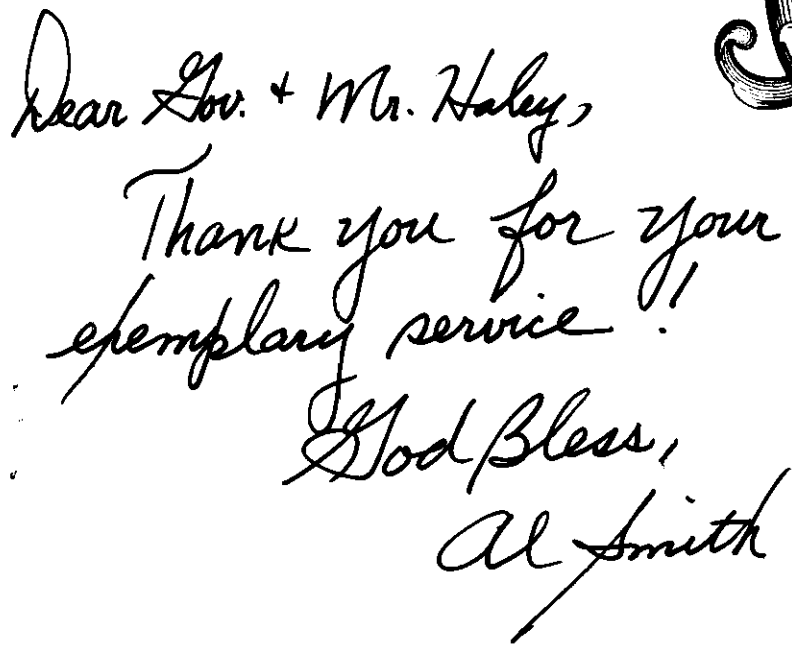 Dear Gov. + Mr. Haley,
Thank you for your
exemplary service!
God Bless,
Al Smith